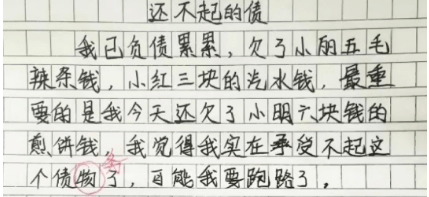 还不起的债
我已负债累累，欠了小丽五毛
辣条钱，小红三块的汽水钱，最重
要的是我今天还欠了小明六块钱的
煎饼钱，我觉得我实在承受不起这
个债物了，可能我要跑路了，
务